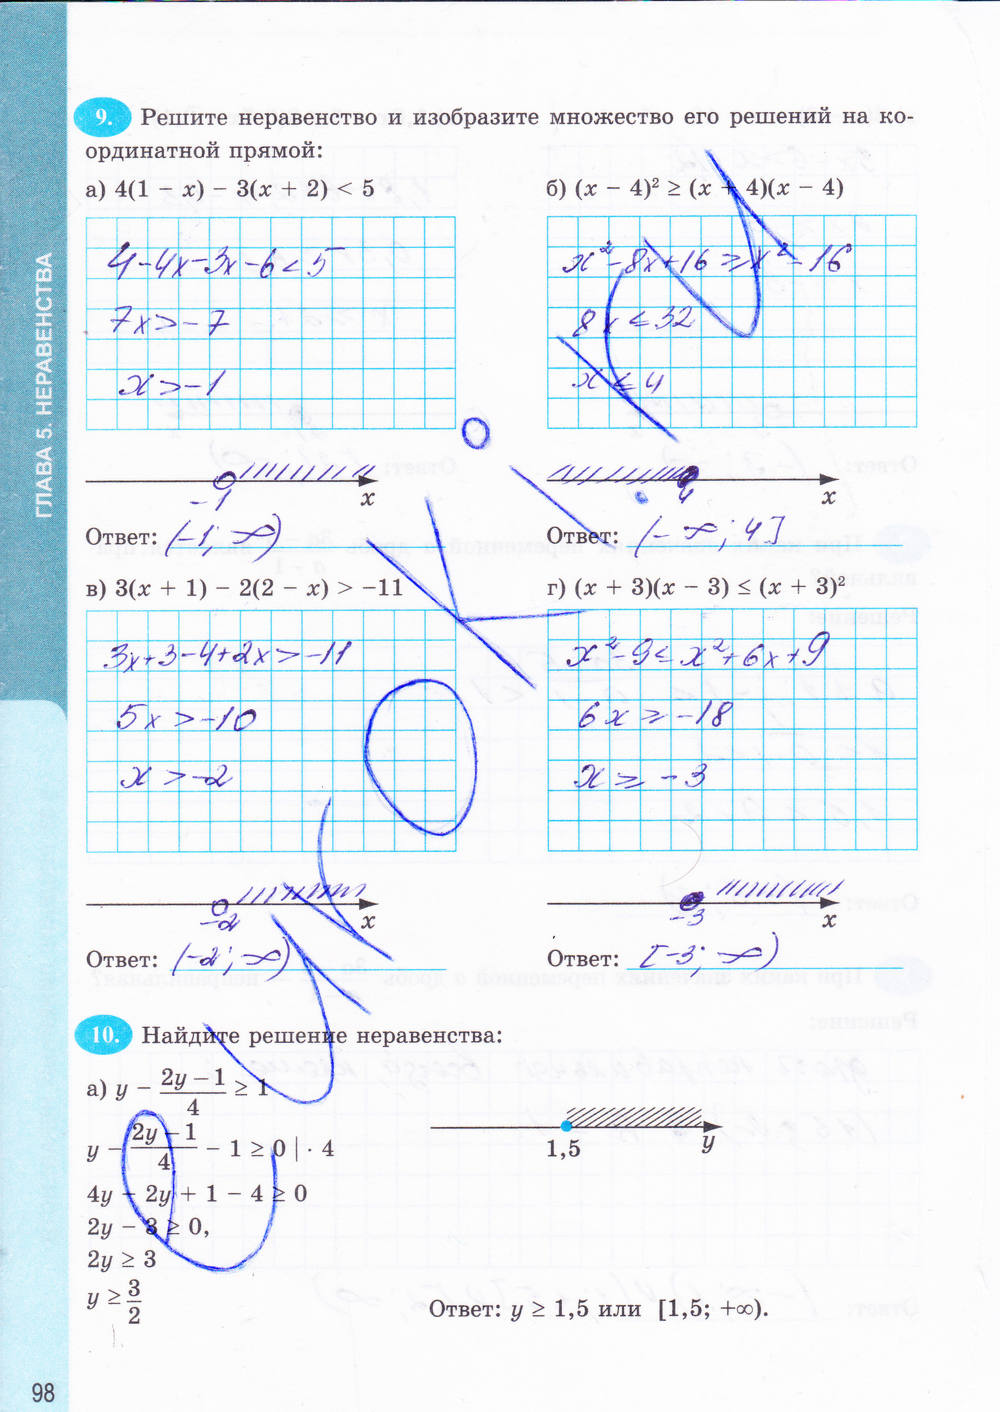 ГЛАВА 5. НЕРАВЕНСТВА
9. Решите неравенство и изобразите множество его решений на ко-
ординатной прямой:
а) 4(1 − x) − 3(x + 2) < 5
4-4x-3x-6<5
7x>-7
x>-1
-1
x
Ответ: (-1; ∞)
б) (x − 4)² ≥ (x + 4)(x − 4)
x²-8x+16≥x²-16
8x≤32
x≤4
4
x
Ответ: (-∞; 4]
в) 3(x + 1) − 2(2 − x) > −11
3x+3-4+2x>-11
5x>-10
x>-2
-2
x
Ответ: (-2; ∞)
г) (x + 3)(x − 3) ≤ (x + 3)²
x²-9≤x²+6x+9
6x≥-18
x≥-3
-3
x
Ответ: [-3; ∞)
10. Найдите решение неравенства:
а) y − (2y − 1)/4 ≥ 1
y − (2y − 1)/4 − 1 ≥ 0 | · 4
4y − 2y + 1 − 4 ≥ 0
2y − 3 ≥ 0,
2y ≥ 3
y ≥ 3/2
1,5
y
Ответ: y ≥ 1,5 или [1,5; +∞).
98